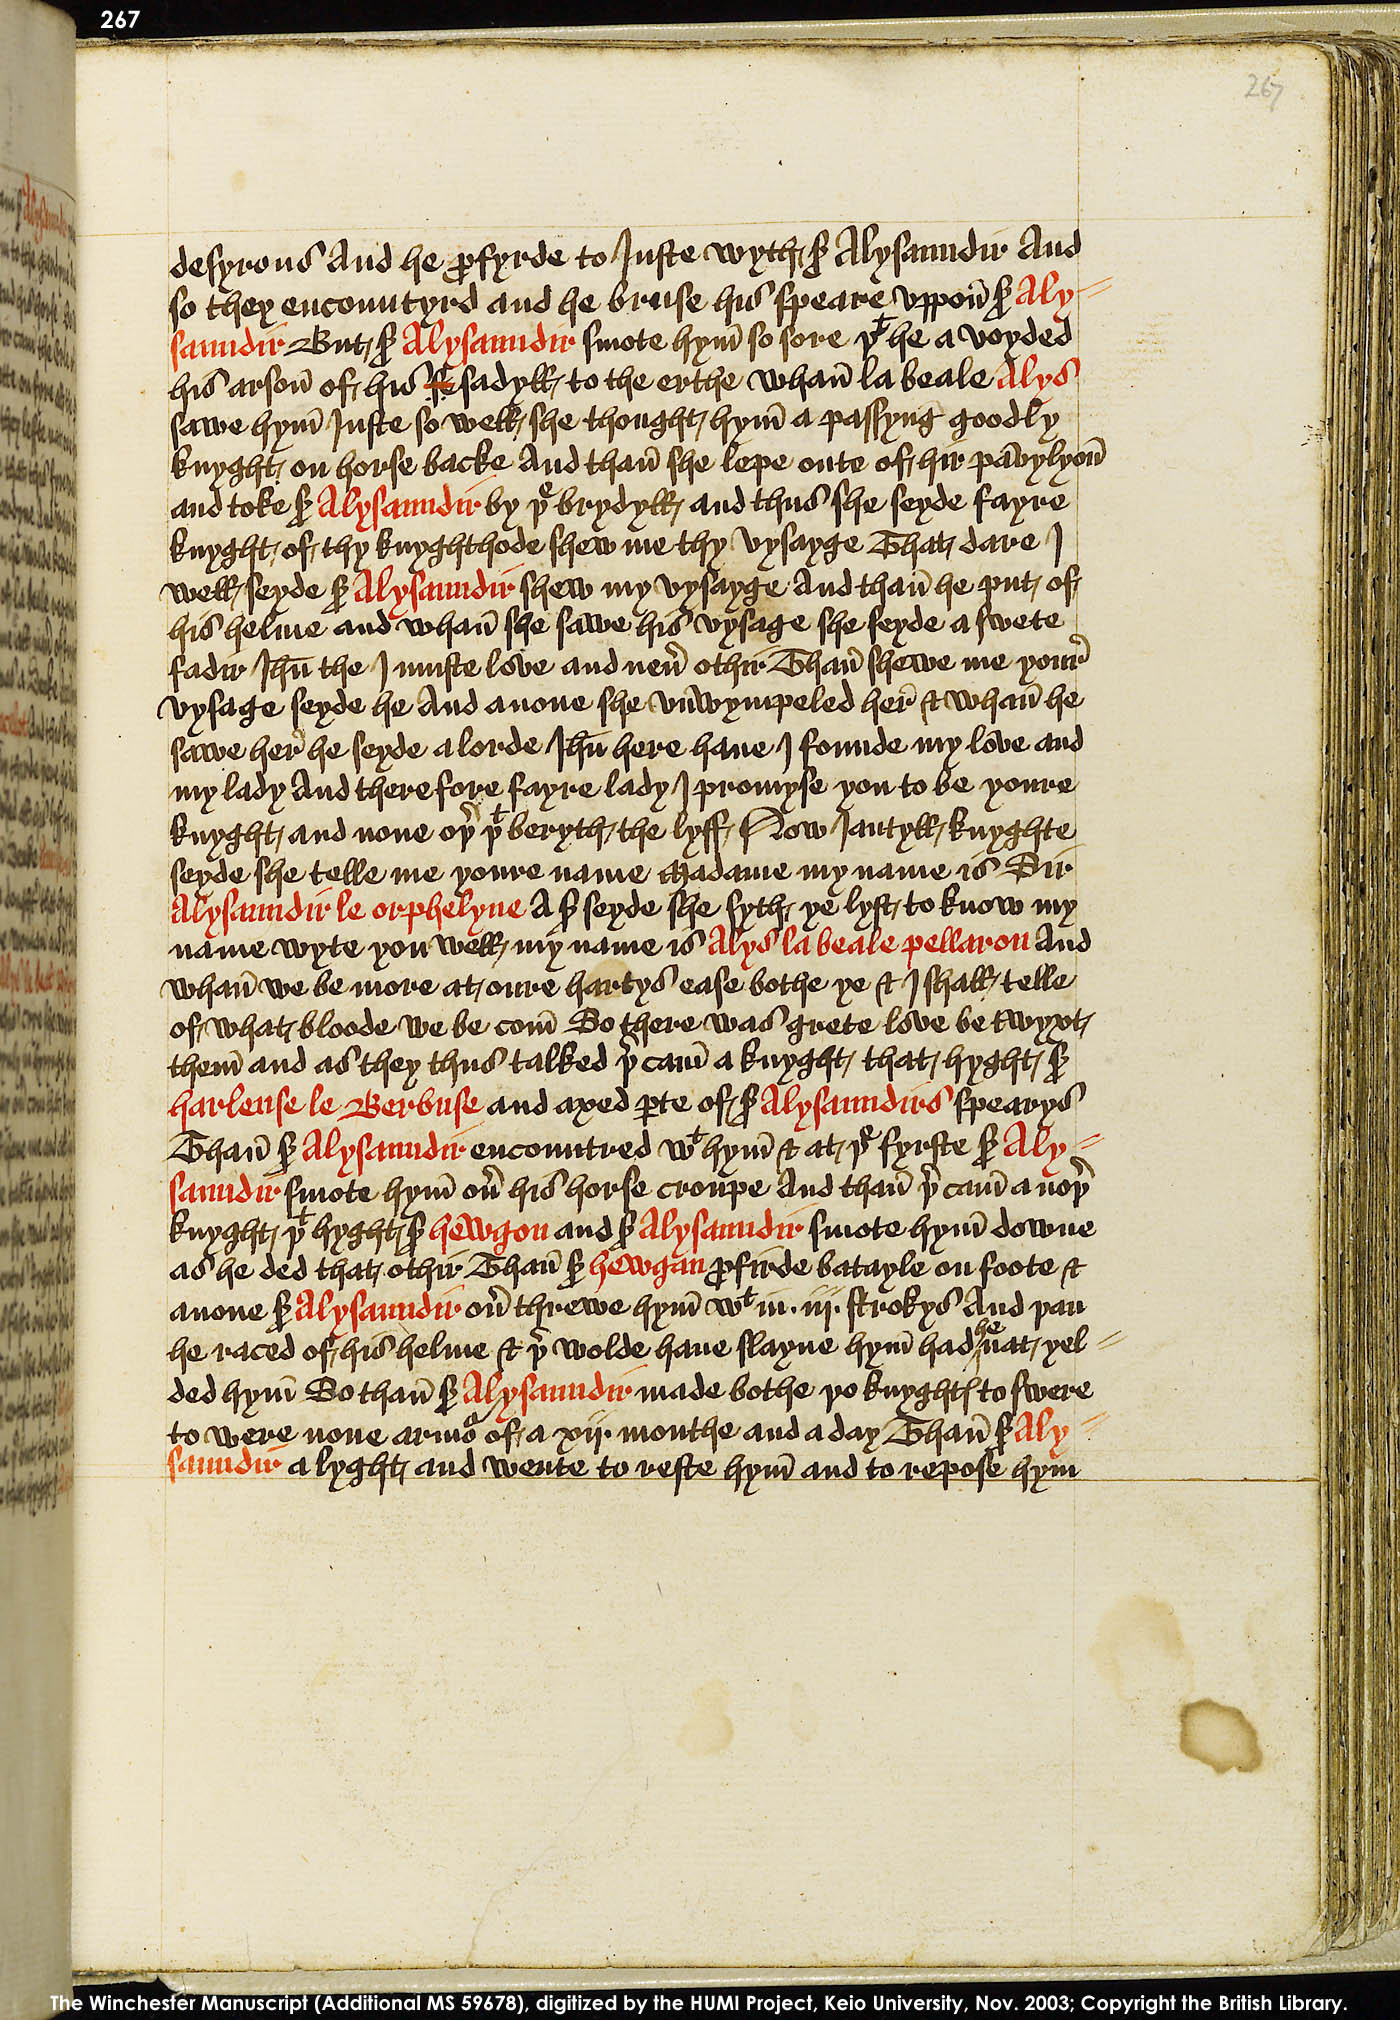 267
267
desyrous And he ꝓfyrde to Juste wyth sr Alysaundir And
so they encountyrd and he bruse his speare vppon̄ sr Aly=
saundir But sr Alysaundir smote hym̄ so sore þt he a voyded
his arson̄ of his sadyll to the erthe whan̄ la beale Alys
sawe hym̄ Juste so well she thought hym̄ a passyng goodly
knyght on horse backe And than̄ she lepe oute of hir pavylyon̄
and toke sr Alysaundir by þe brydyll and thus she seyde fayre
knyght of thy knyghthode shew me thy vysayge That dare I
well seyde sr Alysaundir shew my vysayge And than̄ he put of
his helme and whan̄ she sawe his vysage she seyde a swete
fadir Jhu the I muste love and neu̾ othir Than̄ shewe me your
vysage seyde he And anone she vnwympeled her & whan̄ he
sawe her he seyde a lorde Jhu here haue I founde my love and
my lady And therefore fayre lady I promyse you to be youre
knyght and none oþr þt beryth the lyff Now Jantyll knyghte
seyde she telle me youre name Madame my name is Sir
Alysaundir le orphelyne A sr seyde she syth ye lyst to know my
name wyte you well my name is Alys la beale pellaron And
whan̄ we be more at oure hartys ease bothe ye & I shall telle
of what bloode we be com̄ So there was grete love be twyxt
them̄ and as they thus talked þr cam̄ a knyght that hyght sr
harleuse le Berbuse and axed ꝑte of sr Alysaundirs spearys
Than̄ sr Alysaundir encountred wt hym̄ & at þe fyrste sr Aly=
saundir smote hym̄ ou̾ his horse croupe And than̄ þr cam̄ a noþr
knyght þt hyght sr hewgon and sr Alysaundir smote hym̄ downe
as he ded that othir Than̄ sr hewgan ꝓfirde batayle on foote &
anone sr Alysaundir ou̾ threwe hym̄ wt iij strokys And þan
he raced of his helme & þr wolde haue slayne hym̄ had he nat yel=
ded hym̄ So than̄ sr Alysaundir made bothe þo knyghtes to swere
to were none armor of a xij monthe and a day Than̄ sr Aly=
saundir a lyght and wente to reste hym̄ and to repose hym
The Winchester Manuscript (Additional MS 59678), digitized by the HUMI Project, Keio University, Nov. 2003; Copyright the British Library.